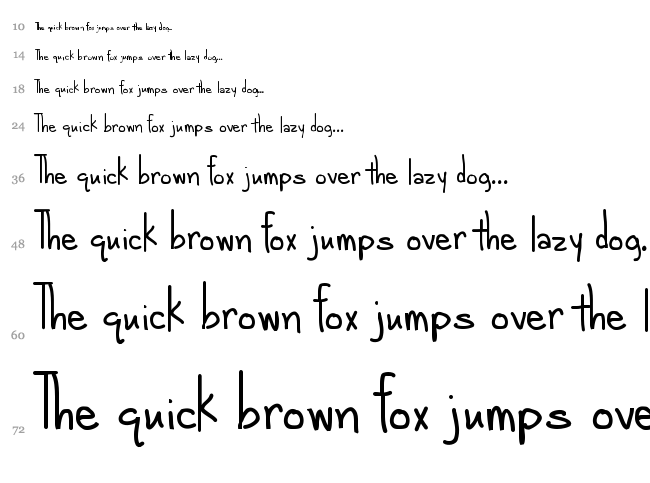 10 The quick brown fox jumps over the lazy dog...
14 The quick brown fox jumps over the lazy dog...
18 The quick brown fox jumps over the lazy dog...
24 The quick brown fox jumps over the lazy dog...
36 The quick brown fox jumps over the lazy dog...
48 The quick brown fox jumps over the lazy dog.
60 The quick brown fox jumps over the l
72 The quick brown fox jumps ove